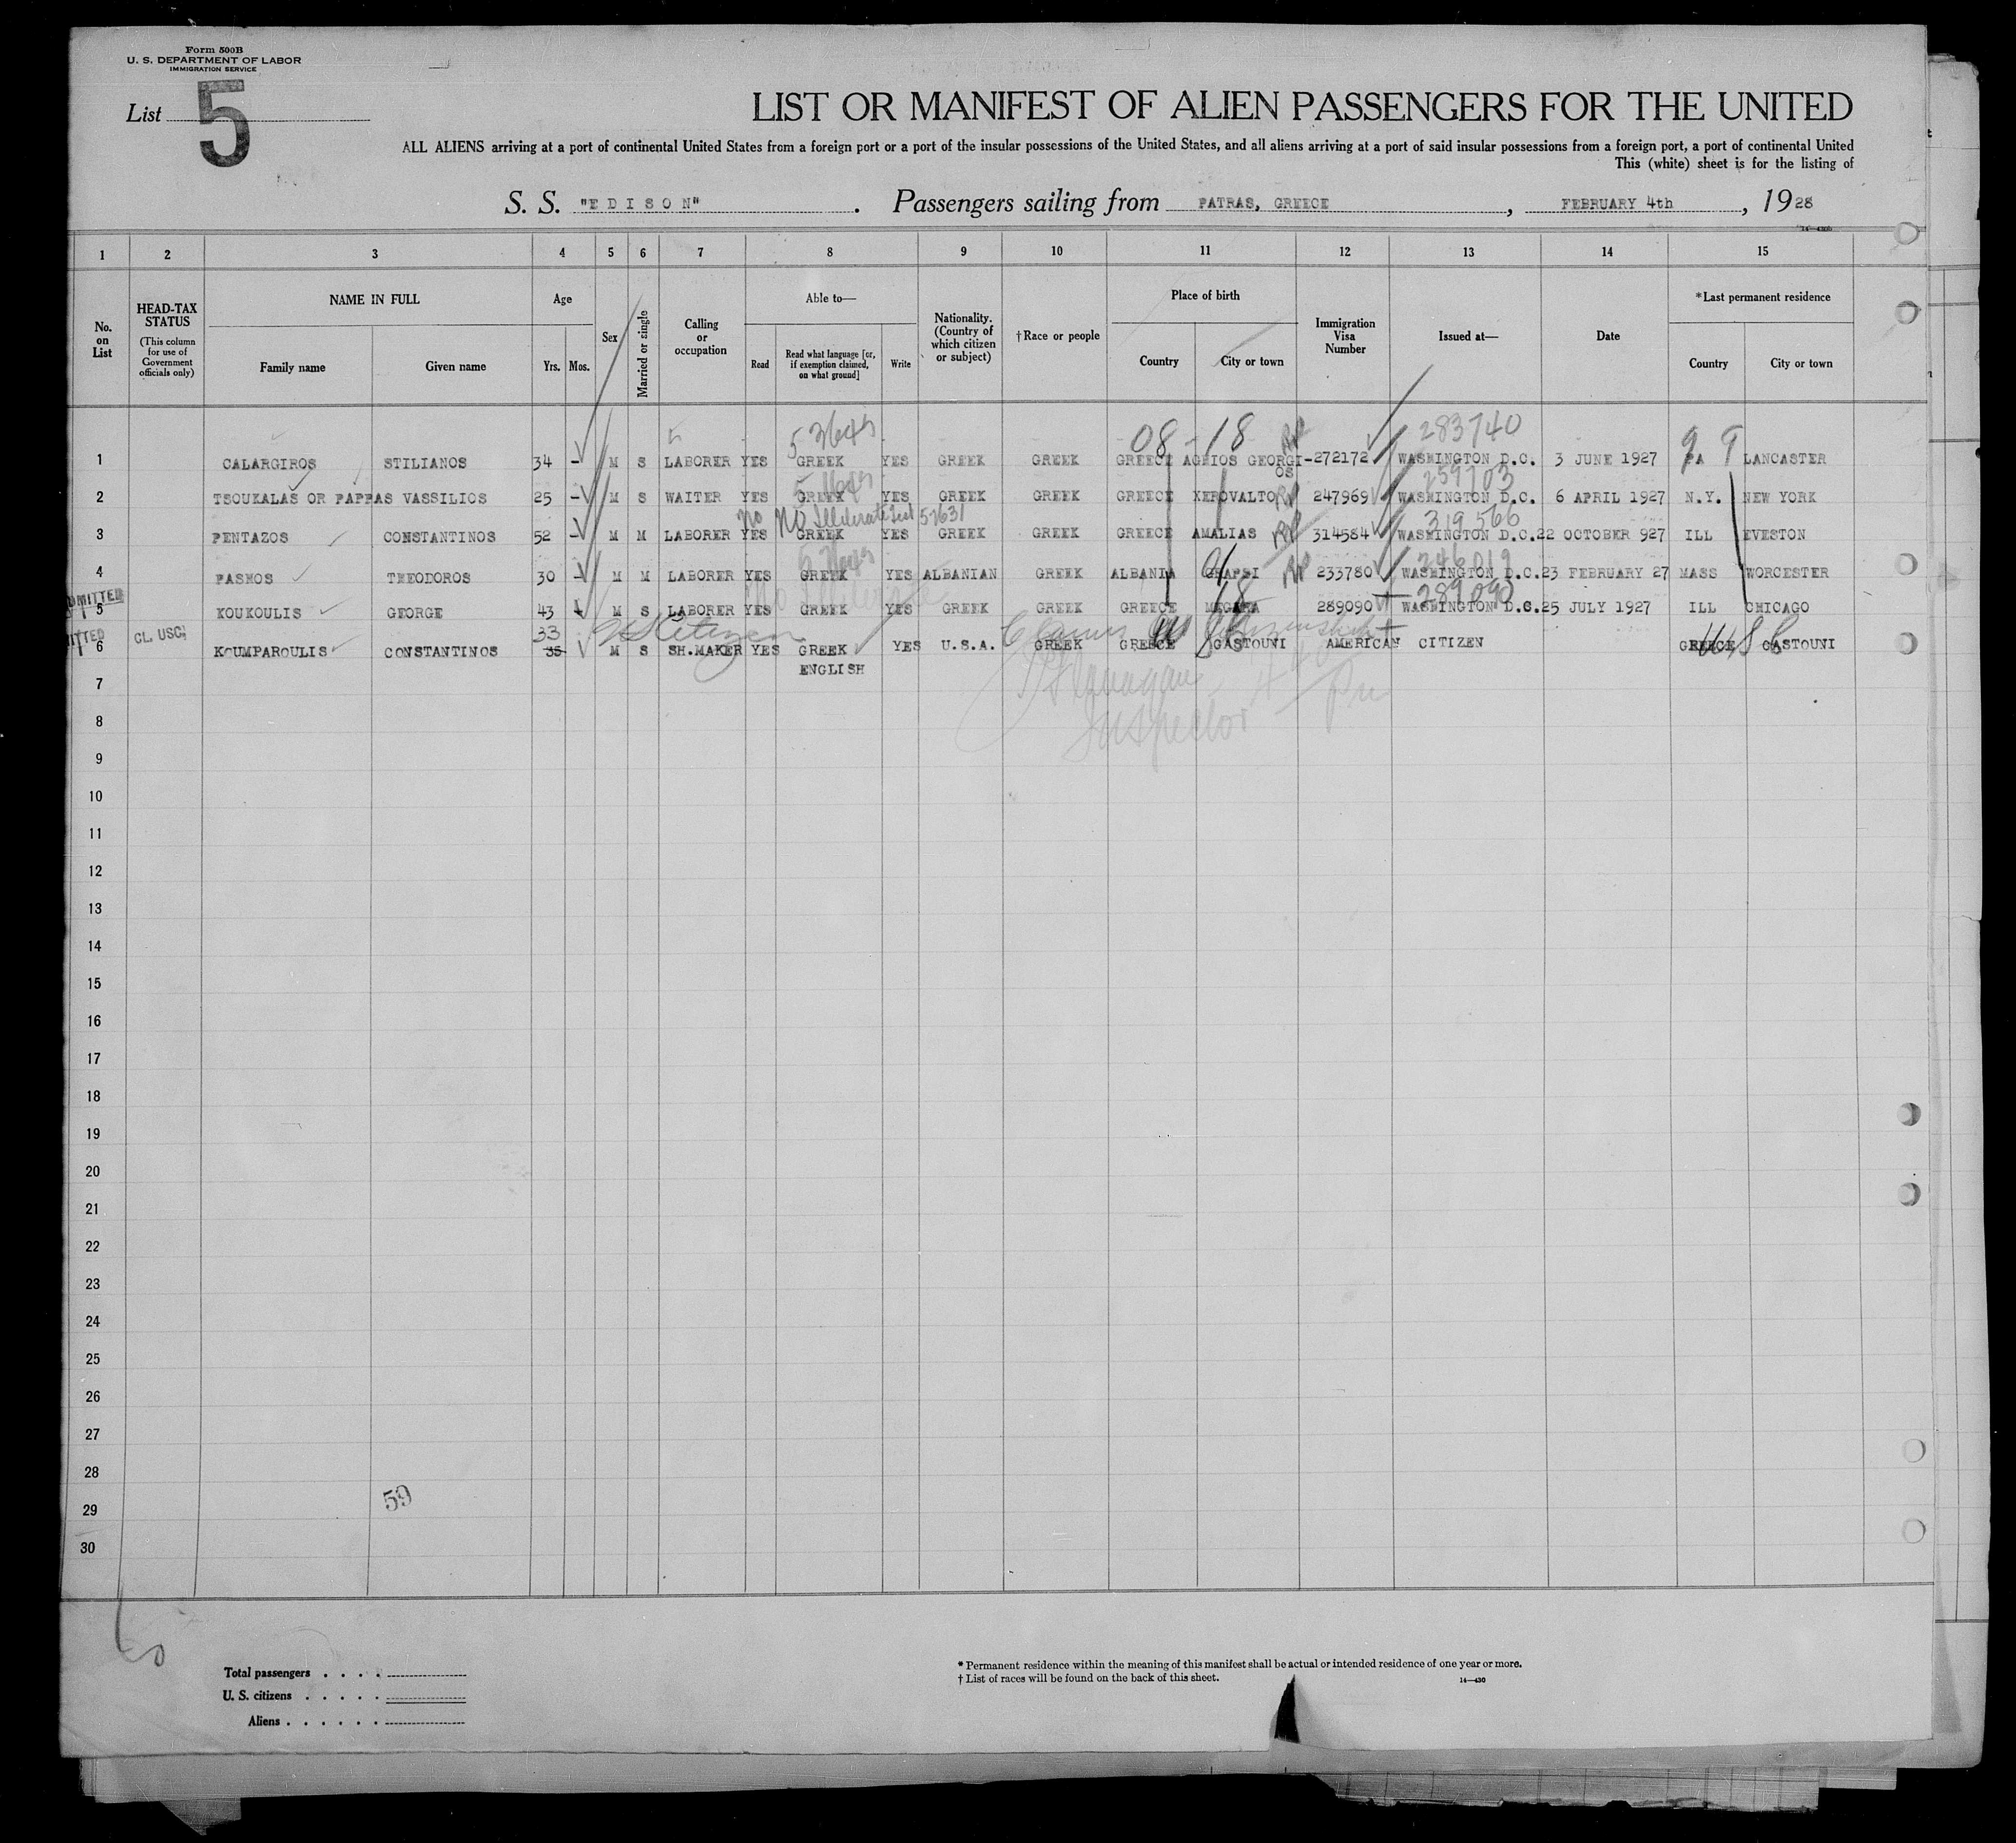 Form 500B
U. S. DEPARTMENT OF LABOR
IMMIGRATION SERVICE
List 5
LIST OR MANIFEST OF ALIEN PASSENGERS FOR THE UNITED
ALL ALIENS arriving at a port of continental United States from a foreign port or a port of the insular possessions of the United States, and all aliens arriving at a port of said insular possessions from a foreign port, a port of continental United
This (white) sheet is for the listing of
S. S. "EDISON". Passengers sailing from PATRAS, GREECE, FEBRUARY 4th, 1928
1 2 3 4 5 6 7 8 9 10 11 12 13 14 15
No. on List
HEAD-TAX STATUS (This column for use of Government officials only)
NAME IN FULL
Family name Given name
Age
Yrs. Mos.
Sex
Married or single
Calling or occupation
Able to—
Read Read what language [or, if exemption claimed, on what ground] Write
Nationality. (Country of which citizen or subject)
†Race or people
Place of birth
Country City or town
Immigration Visa Number
Issued at—
Date
*Last permanent residence
Country City or town
08-18 283740
1 CALARGIROS STILIANOS 34 - M S LABORER YES GREEK YES GREEK GREEK GREECE AGHIOS GEORGI-OS 272172 WASHINGTON D.C. 3 JUNE 1927 PA LANCASTER
259703
2 TSOUKALAS OR PAPPAS VASSILIOS 25 - M S WAITER YES GREEK YES GREEK GREEK GREECE XEROVALTO 247969 WASHINGTON D.C. 6 APRIL 1927 N.Y. NEW YORK
No 319566
3 PENTAZOS CONSTANTINOS 52 - M M LABORER YES GREEK YES GREEK GREEK GREECE AMALIAS 314584 WASHINGTON D.C. 22 OCTOBER 927 ILL EVESTON
246019
4 PASHOS THEODOROS 30 - M M LABORER YES GREEK YES ALBANIAN GREEK ALBANIA GRAPSI 233780 WASHINGTON D.C. 23 FEBRUARY 27 MASS WORCESTER
289090
5 KOUKOULIS GEORGE 43 - M S LABORER YES GREEK YES GREEK GREEK GREECE MEGARA 289090 WASHINGTON D.C. 25 JULY 1927 ILL CHICAGO
33 US Citizen
6 CL. USC. KOUMPAROULIS CONSTANTINOS 35 M S SH.MAKER YES GREEK ENGLISH YES U.S.A. GREEK GREECE GASTOUNI AMERICAN CITIZEN GREECE GASTOUNI
Inspector
7
8
9
10
11
12
13
14
15
16
17
18
19
20
21
22
23
24
25
26
27
28
29
30
59
Total passengers . . . .
U. S. citizens . . . . .
Aliens . . . . . .
* Permanent residence within the meaning of this manifest shall be actual or intended residence of one year or more.
† List of races will be found on the back of this sheet.
14—430